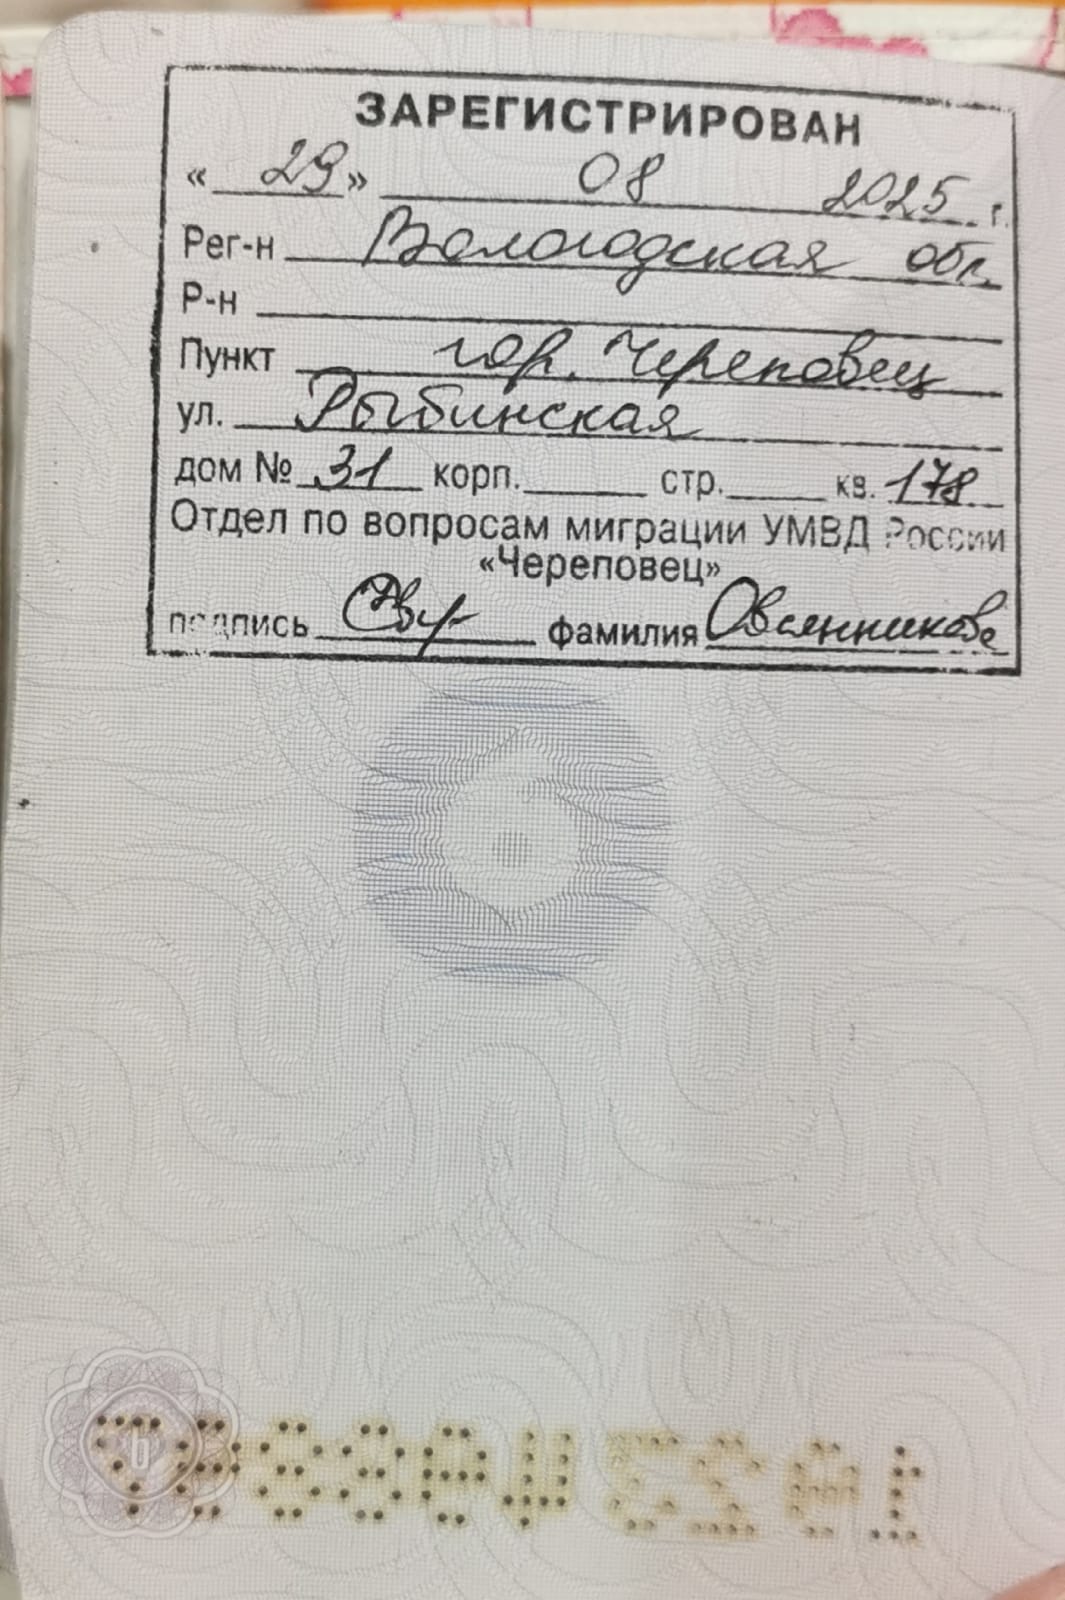 ЗАРЕГИСТРИРОВАН
« 29 » 08 2025 г.
Рег-н Вологодская обл.
Р-н
Пункт гор. Череповец
ул. Рыбинская
дом № 31 корп. стр. кв. 178
Отдел по вопросам миграции УМВД России
«Череповец»
подпись фамилия Овсянникова